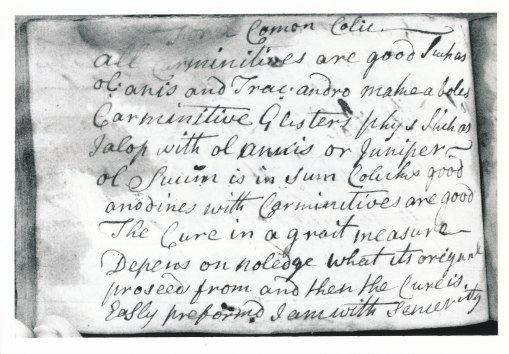 For a Comon Colic
all Carminitives are good Such as
ol: anis and Trac: andro make a boles
Carminitive Glisters phys Such as
Jalop with ol annis or Juniper
ol Succin is in sum Colicks good
anodines with Carminitives are good
The Cure in a grait measure
Depens on noledge what its orignal
proseeds from and then the Cure is
Easly preformd I am with Sencerity